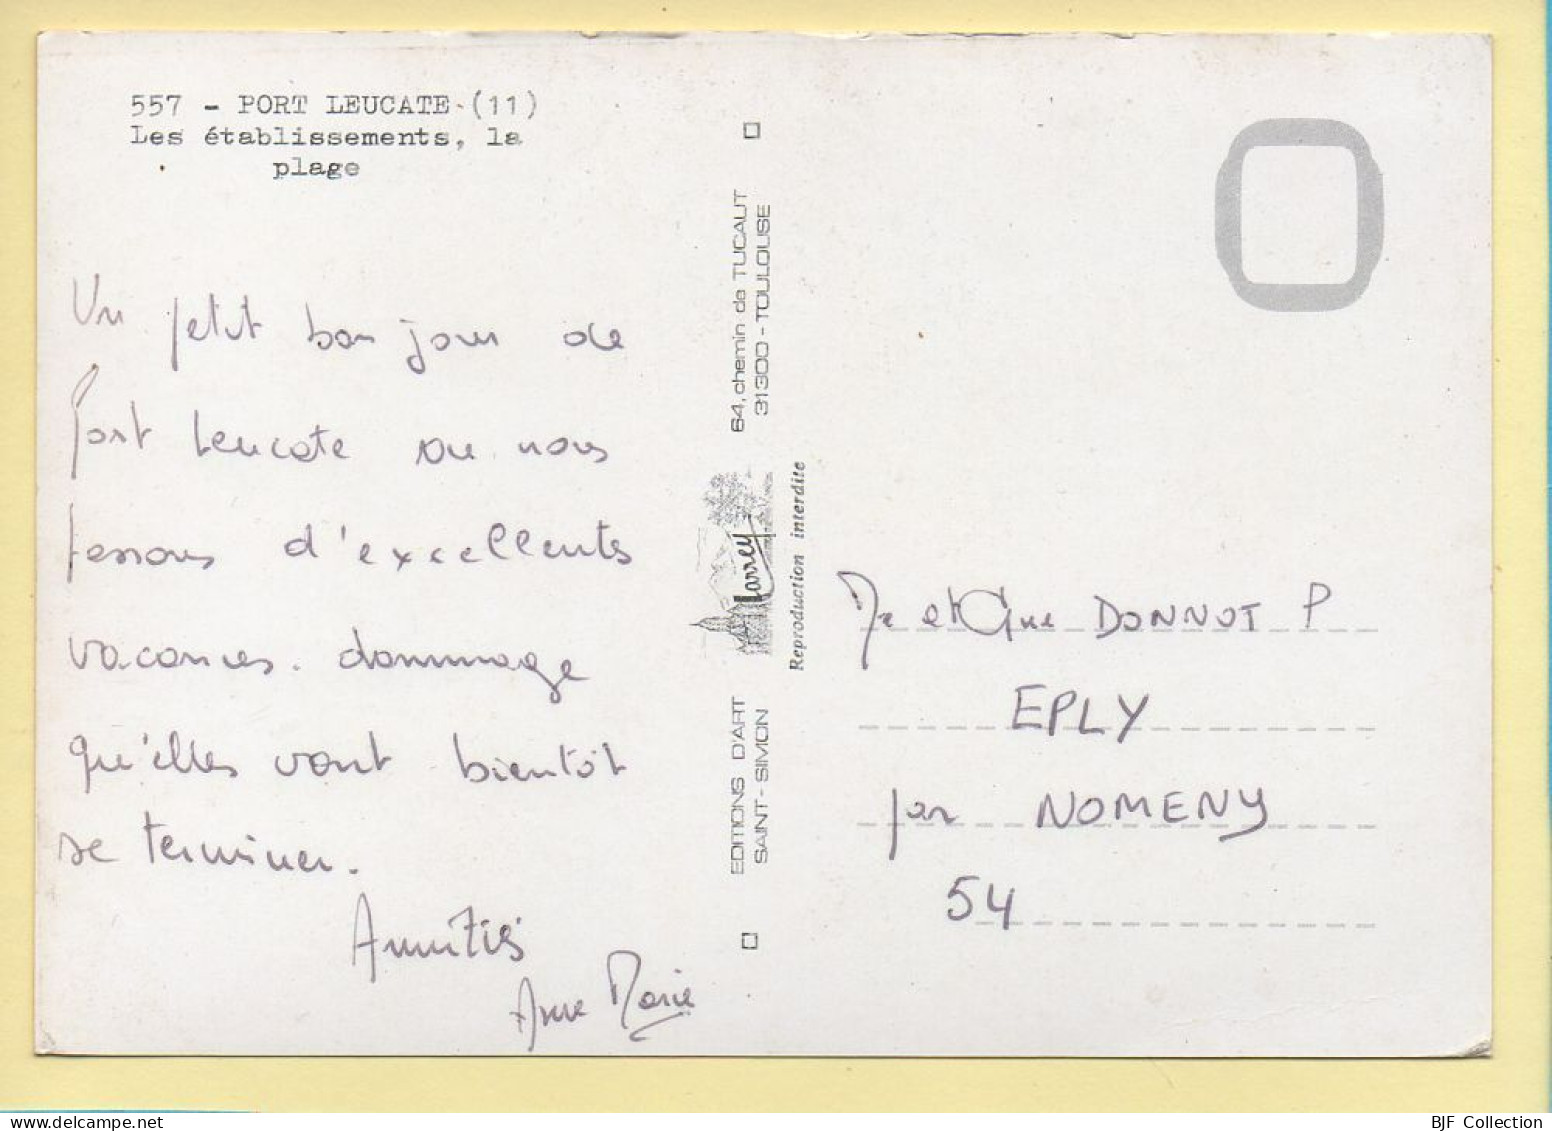 557 - PORT LEUCATE (11)
Les établissements, la
plage
Un petit bonjour de
Port Leucate ou nous
passons d'excellentes
vacances. dommage
qu'elles vont bientôt
se terminer.
Amitiés
Anne Marie
EDITIONS D'ART
SAINT-SIMON
Larrey
64, chemin de TUCAUT
31300 - TOULOUSE
Reproduction interdite
Mr et Mme DONNOT P
EPLY
par NOMENY
54
BJF Collection